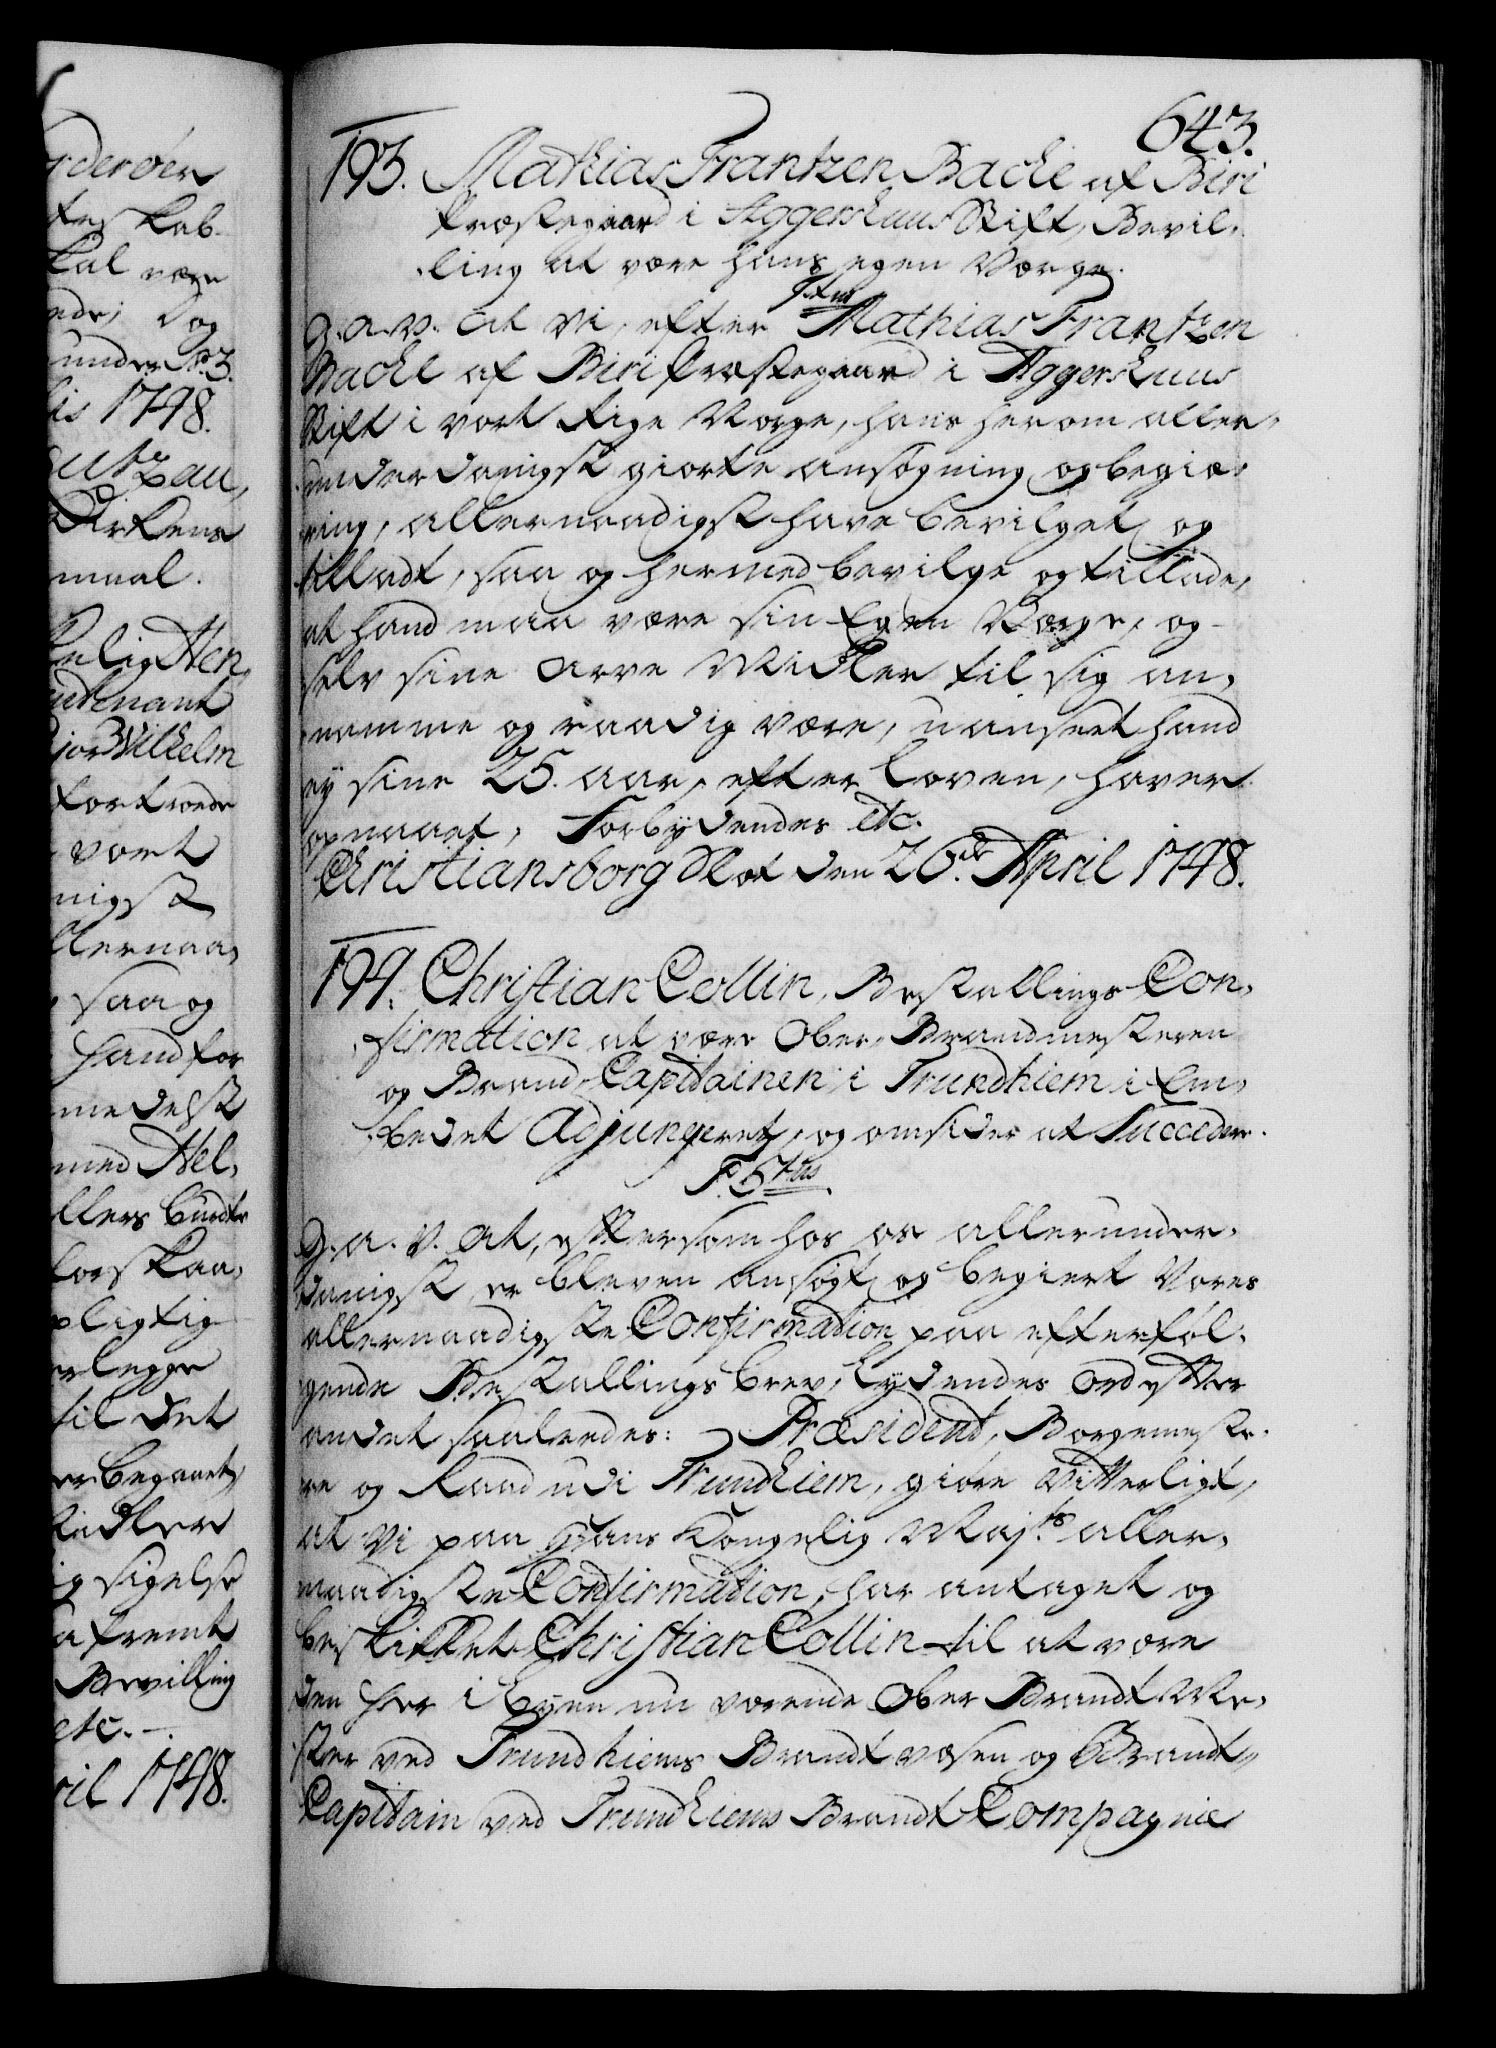 643.
193. Mathias Frantzen Backe af Biri
Præstegaard i Aggershuus Stift, Bevil-
ling at være hans egen Værge.
F5tus
G. A. V. At Vi, efter Mathias Frantzen
Backe af Biri Præstegaard i Aggershuus
Stift i vort Rige Norge, hans herom aller-
underdanigst giorte ansøgning og begiæ-
ring, allernaadigst have bevilget og
tilladt, saa og hermed bevilge og tillade,
at hand maa være sin Egen Værge, og
selv sine Arve Midler til sig an-
namme og raadig være, uanseet hand
ey sine 25. aar, efter Loven, haver
opnaaet, Forbydendes etc.
Christiansborg Slot den 26de April 1748.
194. Christian Collin, Bestallings Con-
firmation at være Ober-Brandmesteren
og Brand-Capitainen i Trundhiem i Em-
bedet Adjungeret, og omsider at Succedere.
F. 5tus
G. A. V. At, eftersom hos os allerunder-
danigst er bleven ansøgt og begiert Vores
allernaadigste Confirmation paa efterføl-
gende Bestallings brev, Lydendes ord efter
andet saaledes: Præsident, Borgemeste-
re og Raad udi Trundhiem, giøre Vitterligt,
at Vi paa Hans Kongelig Majts aller-
naadigste Confirmation, har antaget og
beskikket Christian Collin til at være
den her i Byen nu værende Ober Brandt Me-
ster ved Trundhiems Brandt væsen og Brandt-
Capitain ved Trundhiems Brandt Compagnie
rderøer
skab
skal være
dog
under No. 3.
1748.
maal.
Hen
Wilhelm
vort
nigst
llernaa-
saa og
hand for
medelst
med Hel-
forskaa-
pligtig
rlegge
til det
begaaet
Midler
sigelse
fremt
Bevilling
etc.
ril 1748.